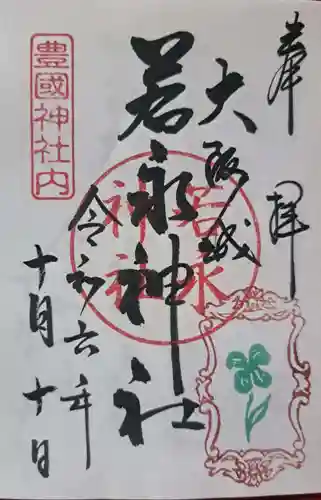 奉拝
大阪城
若永神社
令和六年
十月十日
豊國神社内
若永神社